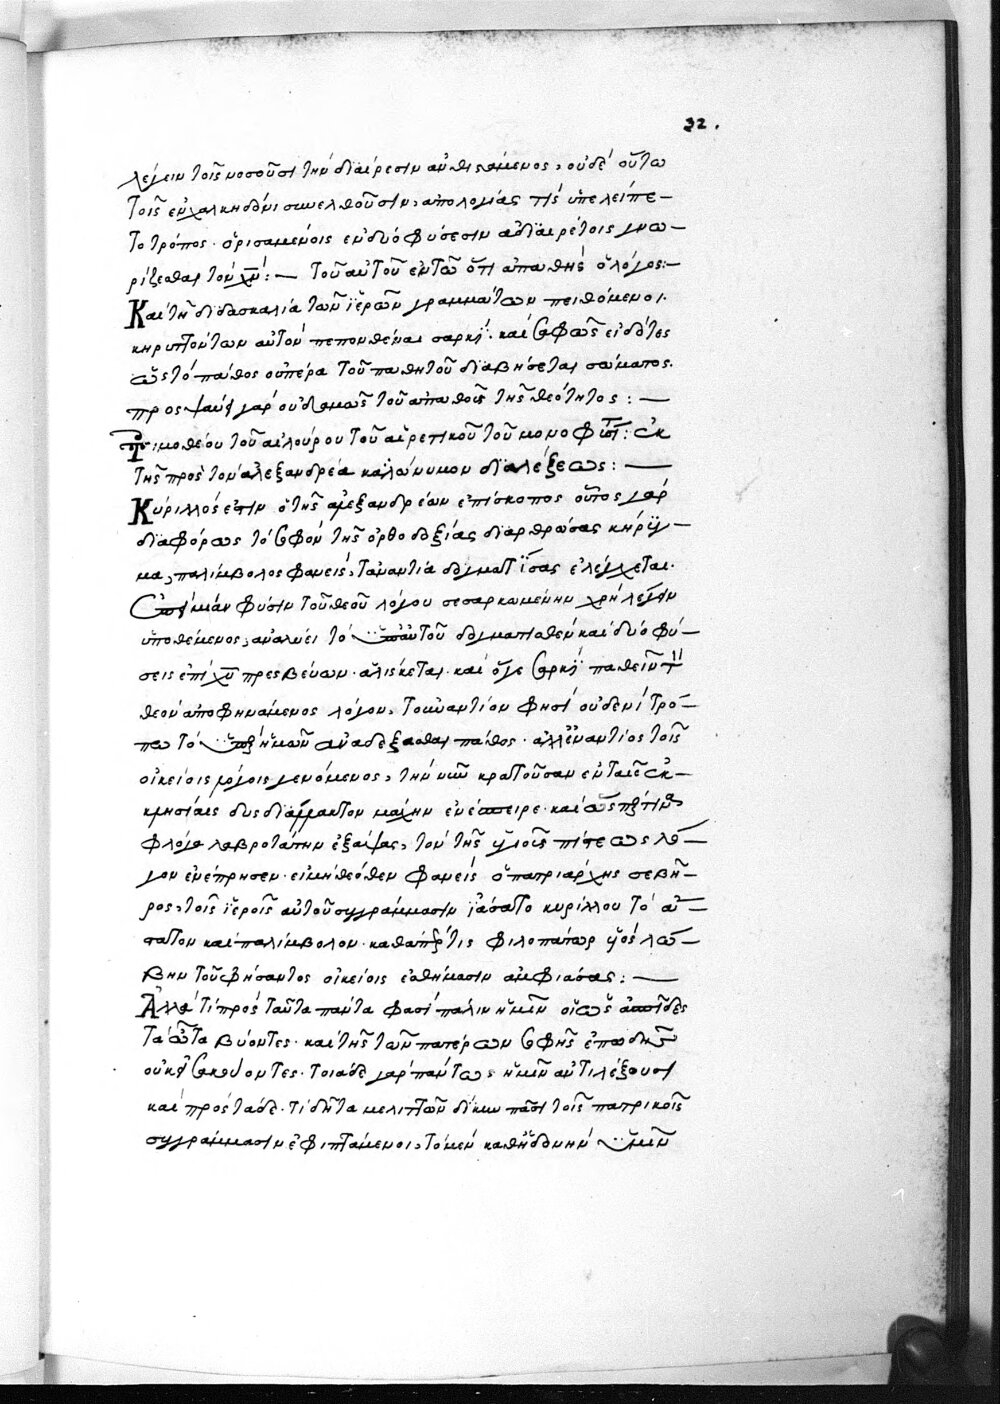 32.
λέγειν τοῖς νοσοῦσι τὴν διαίρεσιν ἀνθιστάμενος, οὐδ' οὕτω
τοῖς ἐν χαλκηδόνι συνελθοῦσιν, ἀπολογίας τίς ὑπελείπε–
το τρόπος· ὁρισαμένοις ἐν δυὸ φύσεσιν ἀδιαιρέτοις γνω–
ρίζεσθαι τὸν χν̅: — τοῦ αὐτοῦ ἐν τῶ ὅτι ἀπαθὴς ὁ λόγος:—
Καὶ τῆ διδασκαλία τῶν ἱερῶν γραμμάτων πειθόμενοι·
κηρυττόντων αὐτὸν πεπονθέναι σαρκί· καὶ σαφῶς εἰδότες
ὡς τὸ πάθος οὐ πέρα τοῦ παθητοῦ διαβήσεται σώματος·
προσψαῦσαν γὰρ οὐδαμῶς τοῦ ἀπαθοῦς τῆς θεότητος: —
Τιμοθέου τοῦ αἰλούρου τοῦ αἱρετικοῦ τοῦ μονοφυσίτ: ἐκ
τῆς πρὸς τὸν ἀλεξανδρέα καλώνυμον διαλέξεως: —
Κύριλλός ἐστιν ὁ τῆς ἀλεξανδρέων ἐπίσκοπος οὗτος γὰρ
διαφόρως τὸ σοφὸν τῆς ὀρθοδοξίας διαρθρώσας κήρυγ–
μα, παλίμβολος φανείς, τἀναντία δογματίσας ἐλέγχεται·
μίαν φύσιν τοῦ θεοῦ λόγου σεσαρκωμένην χρὴ λέγειν
ὑποθέμενος, ἀναλύει τὸ ὑπ' αὐτοῦ δογματισθὲν καὶ δύο φύ–
σεις ἐπὶ χυ̅ πρεσβεύων ἁλίσκεται· καὶ ὅγε σαρκὶ παθεῖν τὸν
θεὸν ἀποφηνάμενος λόγον, τοὐναντίον φησὶ οὐδενὶ τρό–
πω τὸ ὑπὲρ ἡμῶν ἀναδέξασθαι πάθος· ἀλλ' ἐναντίος τοῖς
οἰκείοις λόγοις γενόμενος, τὴν νῦν κρατοῦσαν ἐν ταῖς ἐκ–
κλησίαις δυσδιάλλακτον μάχην ἐνέσπειρε· καὶ ὥσπερ τινὰ
φλόγα λαβροτάτην ἐξάψας, τὸν τῆς ὑγιοῦς πίστεως λό–
γον ἐνέπρησεν· εἰ μὴ θεόθεν φανεὶς ὁ πατριάρχης σεβῆ–
ρος, τοῖς ἱεροῖς αὐτοῦ συγγράμμασιν ἰάσατο κυρίλλου τὸ ἄ–
στατον καὶ παλίμβολον· καθάπερ τις φιλοπάτωρ υἱὸς λώ–
βην τοῦ φύσαντος οἰκείοις ἐσθήμασιν ἀμφιάσας: —
Ἀλλὰ τί πρὸς ταῦτα πάντα φασὶ πάλιν ἡμῖν οἱ ὡς ἀσπίδες
τὰ ὦτα βύοντες· καὶ τῆς τῶν πατέρων σοφῆς ἐπωδῆς
οὐκ εἰσακούοντες· τοιάδε γὰρ πάντως ἡμῖν ἀντιλέξουσι
καὶ πρὸς τάδε· τί δῆτα μελιττῶν δίκην πᾶσι τοῖς πατρικοῖς
συγγράμμασιν ἐφιπτάμενοι, τὸ μὲν καθ' ἡδονὴν ὑμῖν